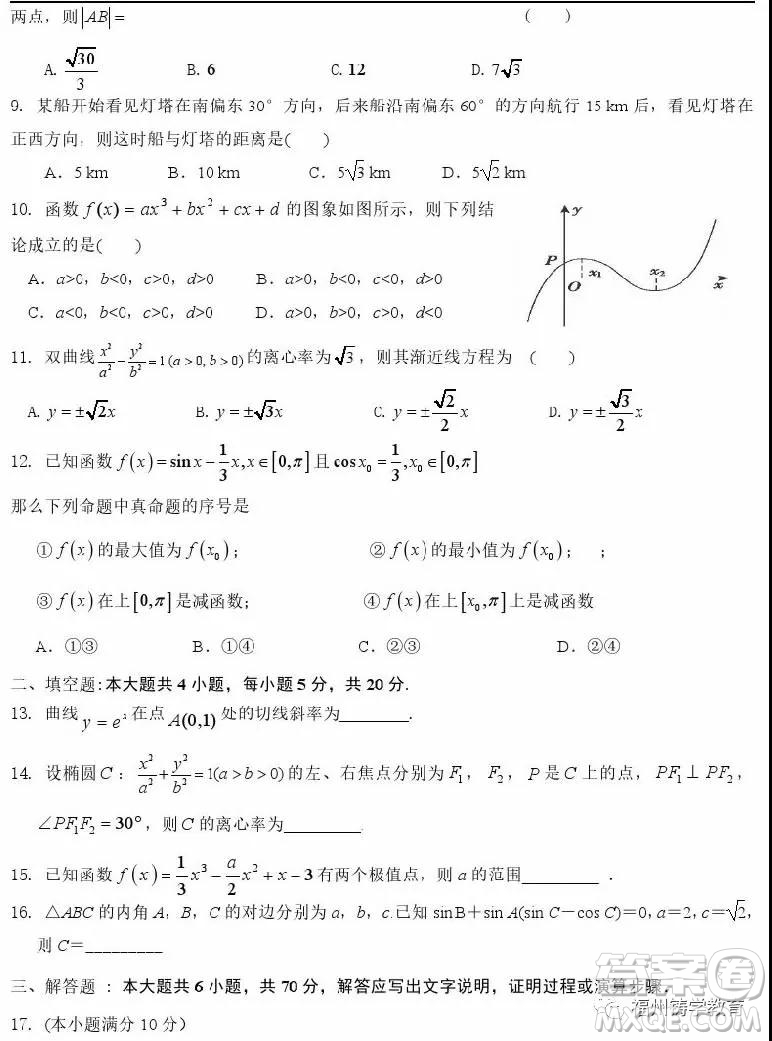 两点，则|AB|=　（　）
A. √30/3　B. 6　C. 12　D. 7√3
9. 某船开始看见灯塔在南偏东30°方向，后来船沿南偏东60°的方向航行15 km后，看见灯塔在
正西方向，则这时船与灯塔的距离是(　)
A．5 km　B．10 km　C．5√3 km　D．5√2 km
10. 函数 f(x)=ax³+bx²+cx+d 的图象如图所示，则下列结
论成立的是(　)
A．a>0，b<0，c>0，d>0　B．a>0，b<0，c<0，d>0
C．a<0，b<0，c>0，d>0　D．a>0，b>0，c>0，d<0
y
P
O
x₁
x₂
x
11. 双曲线 x²/a²-y²/b²=1(a>0,b>0)的离心率为√3，则其渐近线方程为　（　）
A. y=±√2x　B. y=±√3x　C. y=±√2/2 x　D. y=±√3/2 x
12. 已知函数 f(x)=sinx-1/3 x,x∈[0,π]且 cosx₀=1/3,x₀∈[0,π]
那么下列命题中真命题的序号是
① f(x)的最大值为f(x₀)；　② f(x)的最小值为f(x₀)；　；
③ f(x)在上[0,π]是减函数；　④ f(x)在上[x₀,π]上是减函数
A．①③　B．①④　C．②③　D．②④
二、填空题:本大题共4小题，每小题5分，共20分.
13. 曲线 y=eˣ 在点 A(0,1) 处的切线斜率为________.
14. 设椭圆C：x²/a²+y²/b²=1(a>b>0)的左、右焦点分别为F₁，F₂，P是C上的点，PF₁⊥PF₂，
∠PF₁F₂=30°，则C的离心率为_________
15. 已知函数 f(x)=1/3 x³-a/2 x²+x-3有两个极值点，则a的范围_________．
16. △ABC的内角A，B，C的对边分别为a，b，c.已知sinB＋sin A(sin C－cos C)＝0，a＝2，c＝√2，
则C＝_________
三、解答题 ：本大题共6小题，共70分，解答应写出文字说明，证明过程或演算步骤．
17. (本小题满分10分）
福州铸学教育
答案圈
MXQE.COM